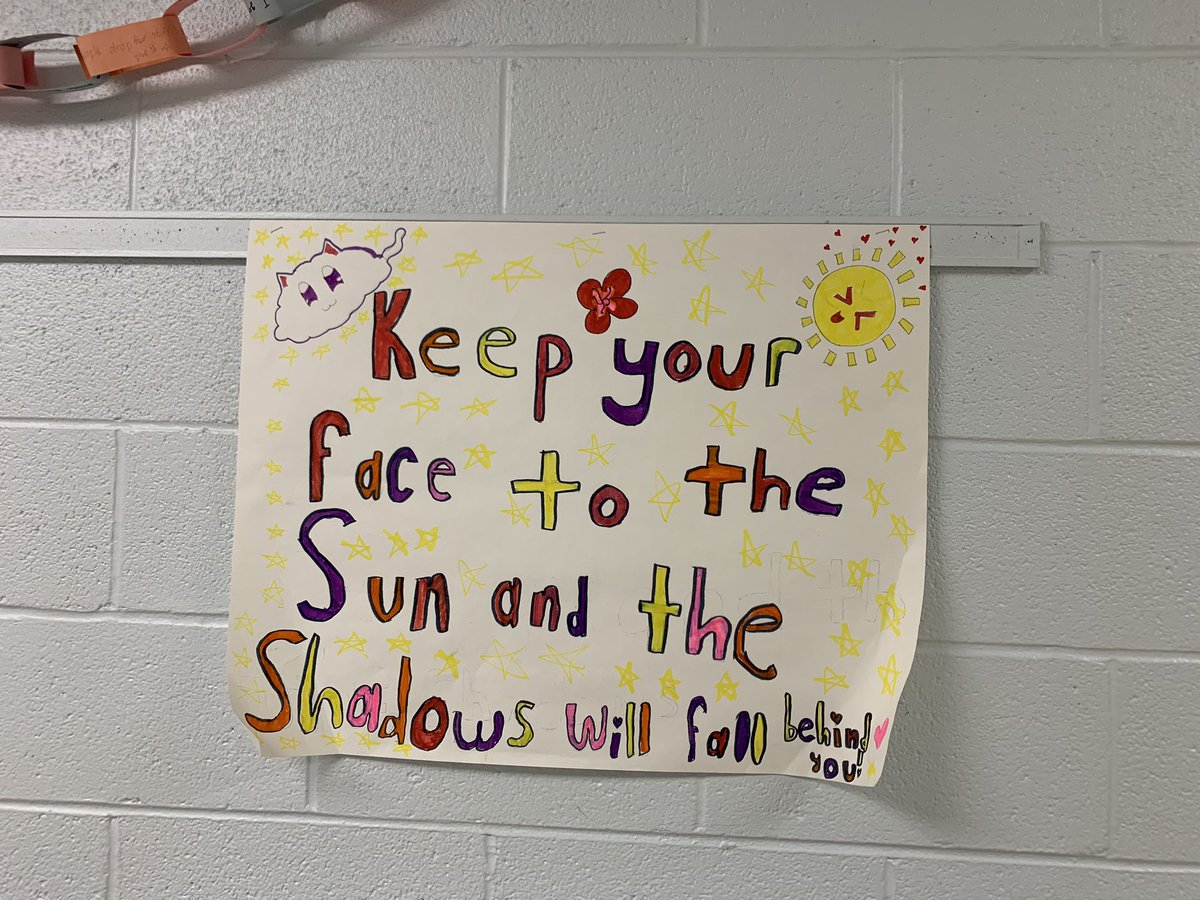 drop
Keep your
face to the
Sun and the
Shadows will fall behind
you!